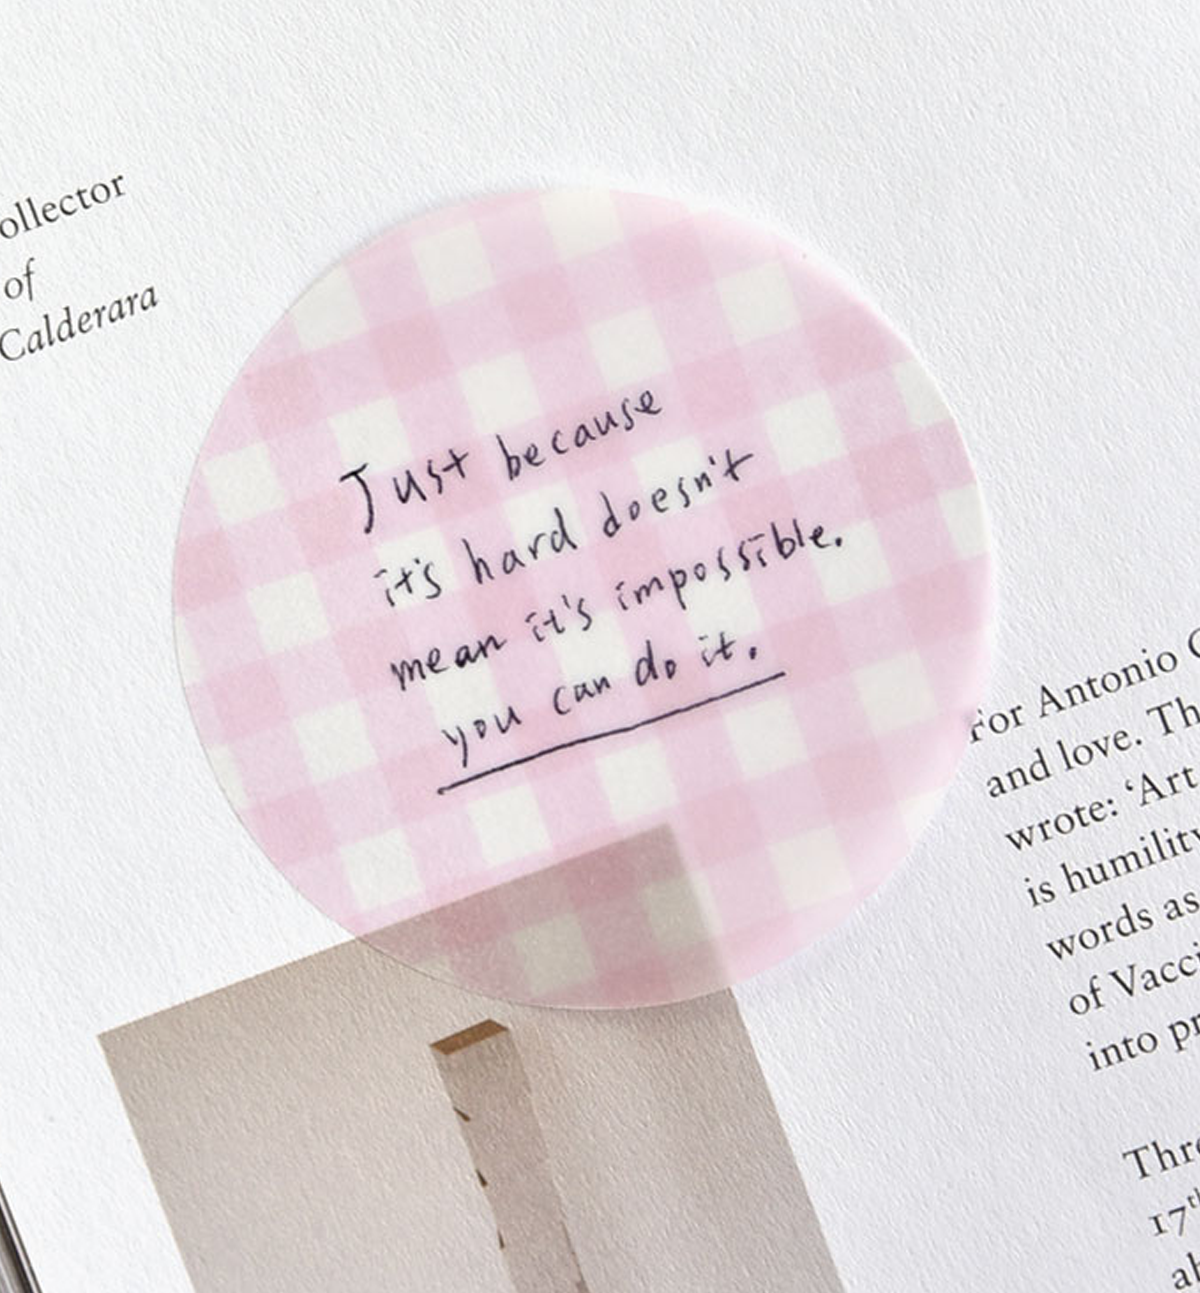 ollector
of
Calderara
Just because
it's hard doesn't
mean it's impossible.
you can do it.
For Antonio
and love. Th
wrote: ‘Art
is humility
words as
of Vacc
into pr
Thre
17th
ab